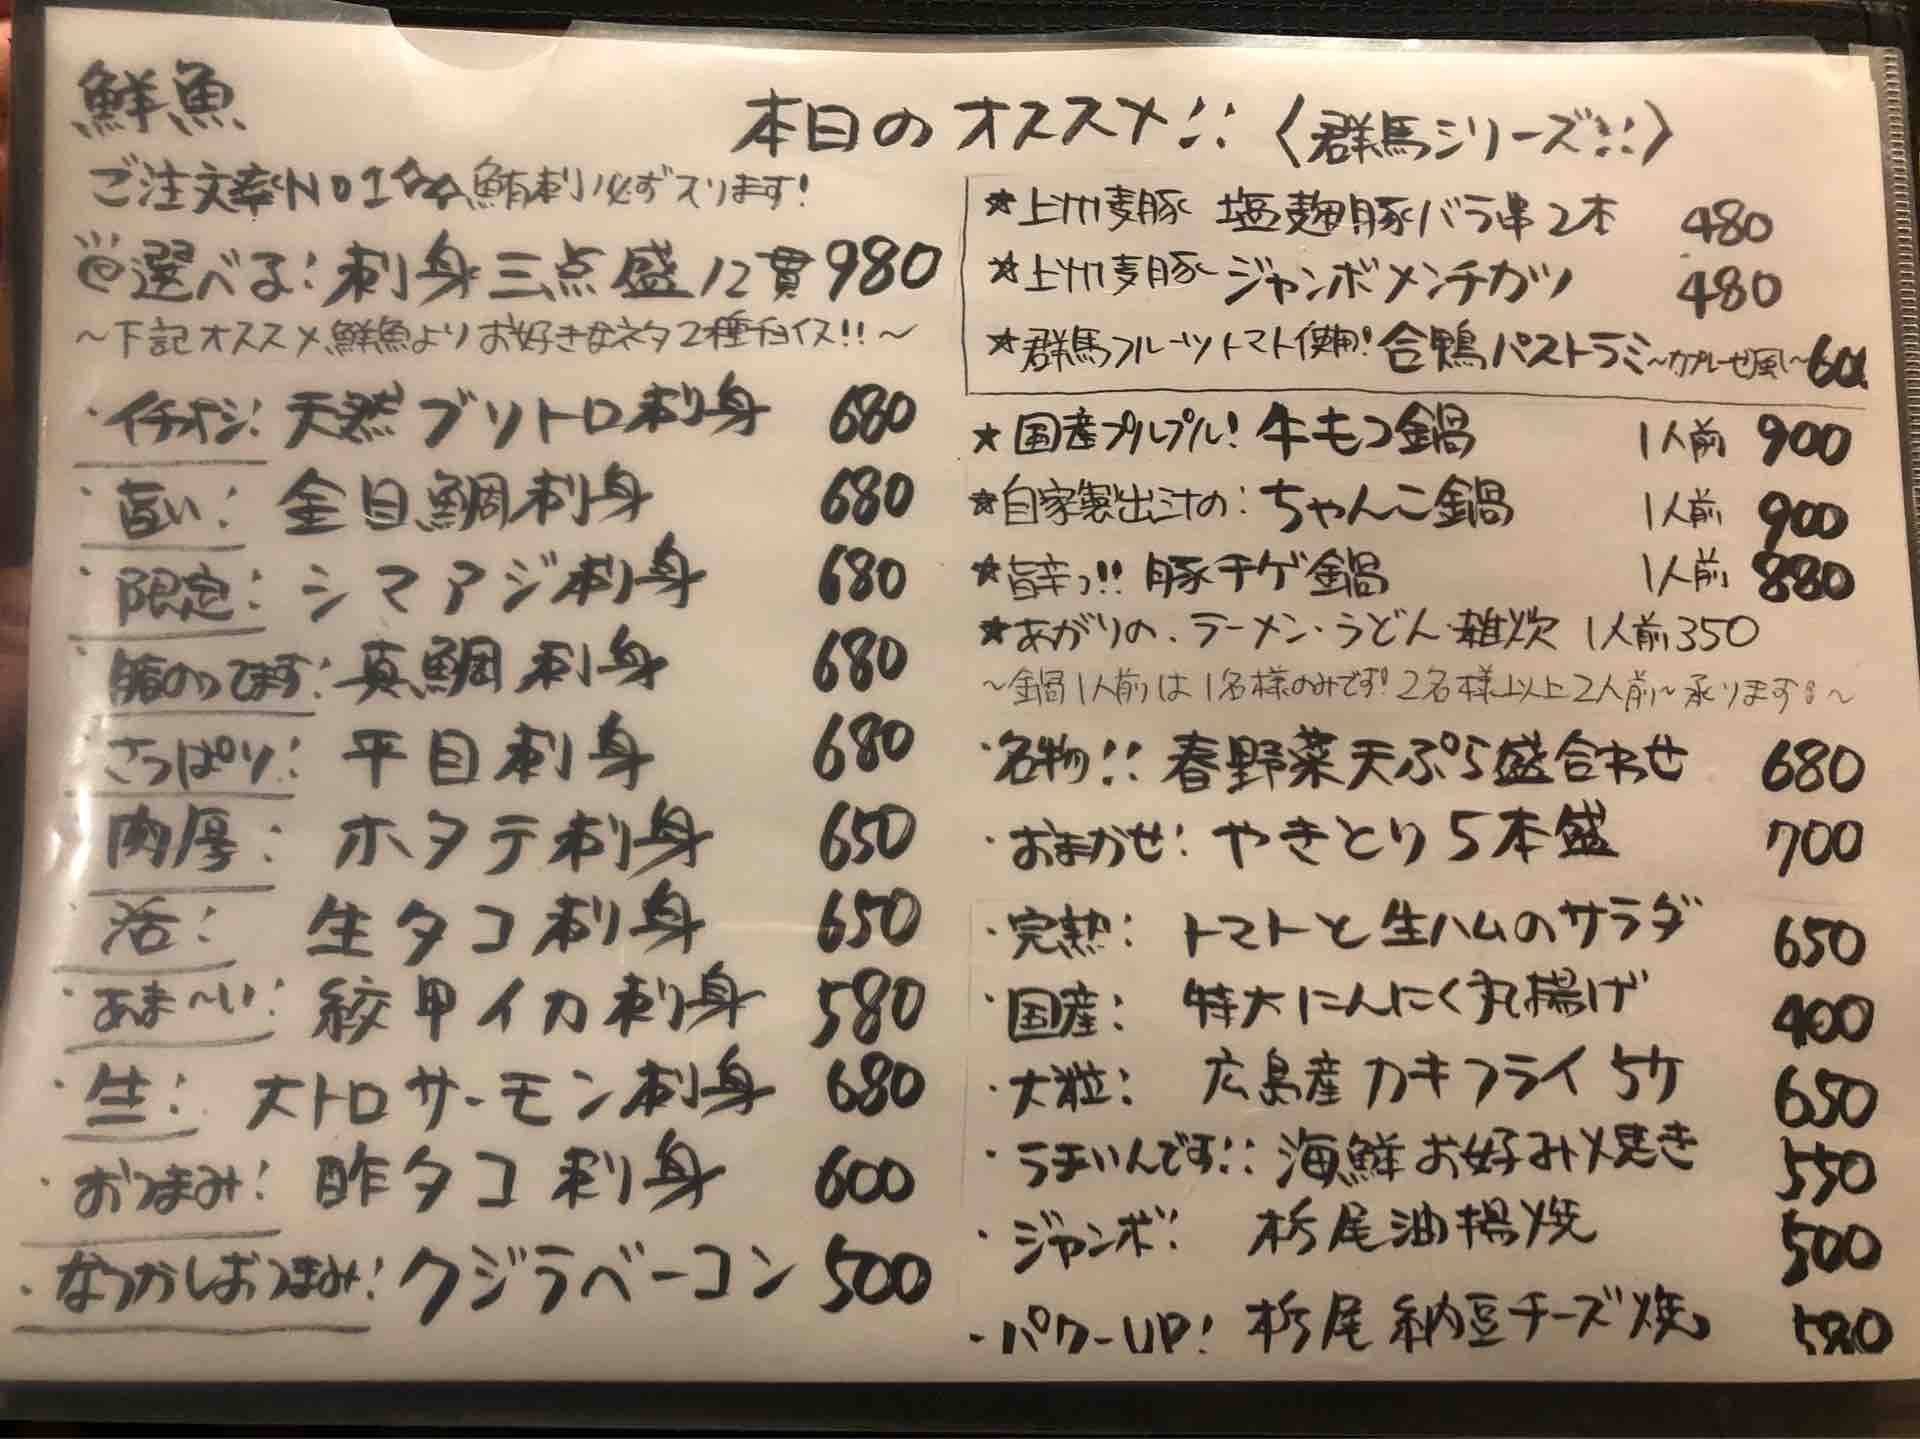 鮮魚
ご注文率NO1☆☆鮪刺必ず入ります!
選べる:刺身三点盛12貫980
~下記オススメ鮮魚よりお好きなネタ2種チョイス!!~
・イチオシ:天然ブリトロ刺身 680
・旨い:金目鯛刺身 680
・限定:シマアジ刺身 680
・脂のってます:真鯛刺身 680
・さっぱり:平目刺身 680
・肉厚:ホタテ刺身 650
・活:生タコ刺身 650
・あま~い:紋甲イカ刺身 580
・生:大トロサーモン刺身 680
・おつまみ:酢タコ刺身 600
・なつかしおつまみ:クジラベーコン 500
本日のオススメ!!〈群馬シリーズ!!〉
★上州麦豚 塩麹豚バラ串2本 480
★上州麦豚 ジャンボメンチカツ 480
★群馬フルーツトマト使用!合鴨パストラミ~カプレーゼ風~
★国産プルプル!牛もつ鍋 1人前 900
★自家製出汁の:ちゃんこ鍋 1人前 900
★旨辛っ!!豚チゲ鍋 1人前 880
★あがりの、ラーメン・うどん・雑炊 1人前350
~鍋1人前は1名様のみです!2名様以上2人前~承ります!~
・名物!!春野菜天ぷら盛合わせ 680
・おまかせ:やきとり5本盛 700
・完熟:トマトと生ハムのサラダ 650
・国産:特大にんにく丸揚げ 400
・大粒:広島産カキフライ5ケ 650
・うまいんです!!海鮮お好み焼き 550
・ジャンボ:栃尾油揚焼 500
・パワーUP!栃尾納豆チーズ焼